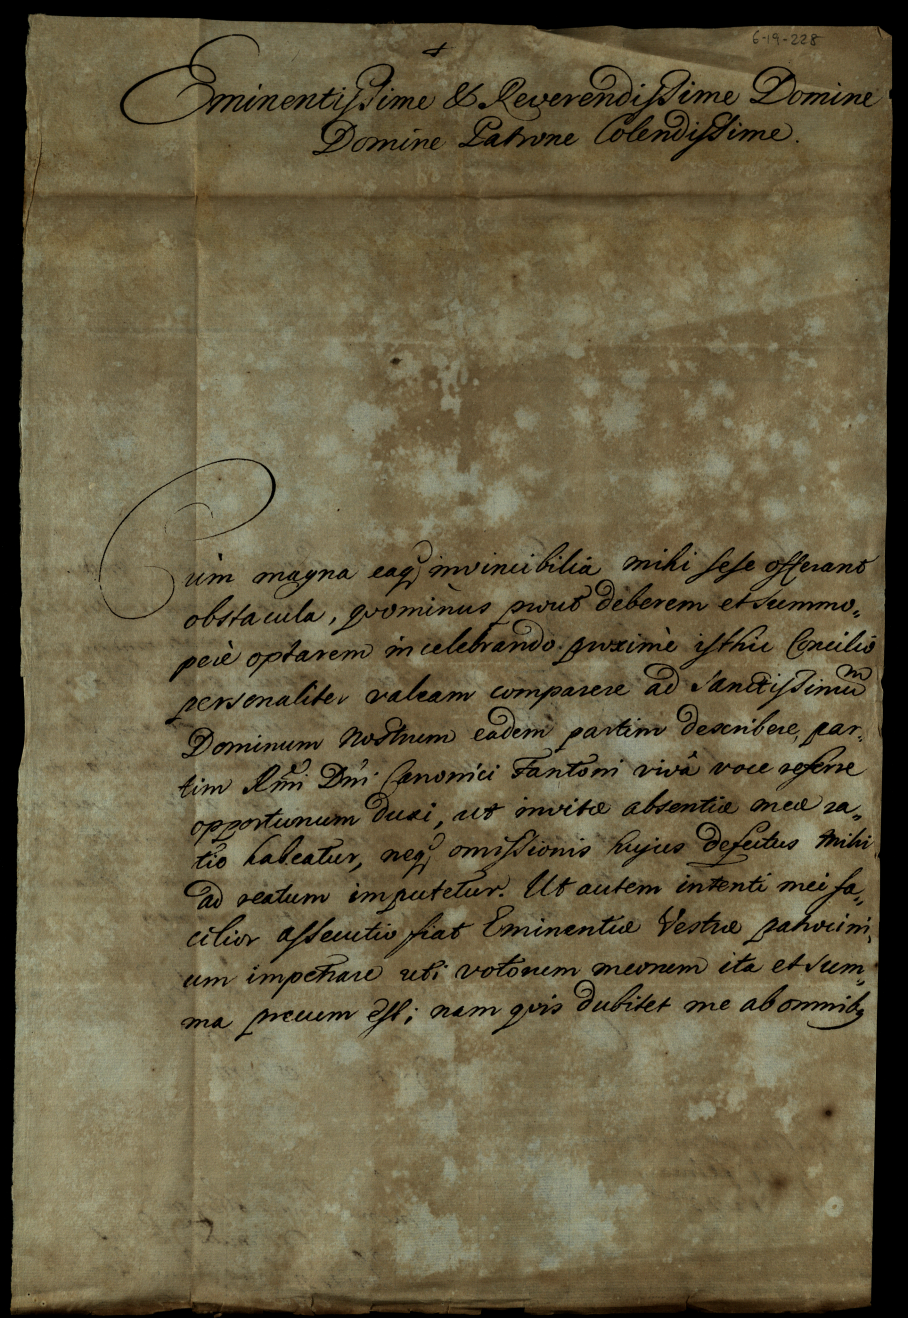 6-19-228
+
Eminentissime & Reverendissime Domine
Domine Patrone Colendissime.
Cùm magna eaq; invincibilia mihi sese offerant
obstacula, quominùs prout deberem et summo„
perè optarem in celebrando proximè isthic Concilio
personaliter valeam comparere ad Sanctissimũm
Dominum Nostrum eadem partim describere, par„
tim Rmi Dni Canonici Fantoni vivâ voce referre
opportunum duxi, ut invitæ absentiæ meæ ra„
tio habeatur, neq; omissionis hujus defectus mihi
ad reatum imputetur. Ut autem intenti mei fa„
cilior assecutio fiat Eminentiæ Vestræ patrocini„
um impetrare uti votorum meorum ita et sum„
ma precum est; nam quis dubitet me ab omnib;